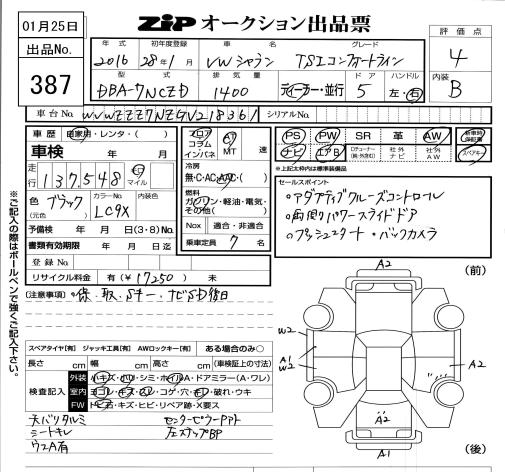 01月25日
出品No.
387
ZiP オークション出品票
評価点
4
内装
B
年式 初年度登録 車名 グレード
2016 28年1月 VWシャラン TSIコンフォートライン
型式 排気量 ドア ハンドル
DBA-7NCZD 1400 ディーラー・並行 5 左・右
車台No. WVWZZZ7NZGV218361 シリアルNo.
車歴 自家用・レンタ・( )
車検 年 月
走行 137,548 km マイル
色 ブラック カラーNo. LC9X 内装色
(元色)
予備検 年 月 日(3・8)No.
書類有効期限 年 月 日迄
登録No.
リサイクル料金 有(¥17250) 未
フロア コラム インパネ
AT MT 速
冷房
無・C・AC・AAC・( )
燃料
ガソリン・軽油・電気・その他( )
Nox 適合・非適合
乗車定員 7 名
PS PW SR 革 AW 新車時保証書
ナビ エアB 社外ナビ 社外AW スペアキー
※上記太枠は標準装備品
セールスポイント
○アダプティブクルーズコントロール
○両側パワースライドドア
○プッシュスタート・バックカメラ
※ご記入の際はボールペンで強くご記入下さい。
(注意事項)・保・取・Sキー・ナビSD後日
スペアタイヤ[有] ジャッキ工具[有] AWロックキー[有] ある場合のみ○
長さ cm 幅 cm 高さ cm (車検証上の寸法)
検査記入
外装 小キズ・凹ツ・シミ・ホイルA・ドアミラー(A・ワレ)
室内 ヨゴレ・キズ・スレ・コゲ・穴・キレ・破れ・ウキ
FW トビ石・キズ・ヒビ・リペア跡・X要ス
天バリタルミ センターピラーアト
シートキレ 左ステップBP
ウスA有
(前)
A2
W2
A1
W2
A2
A2
A1
(後)